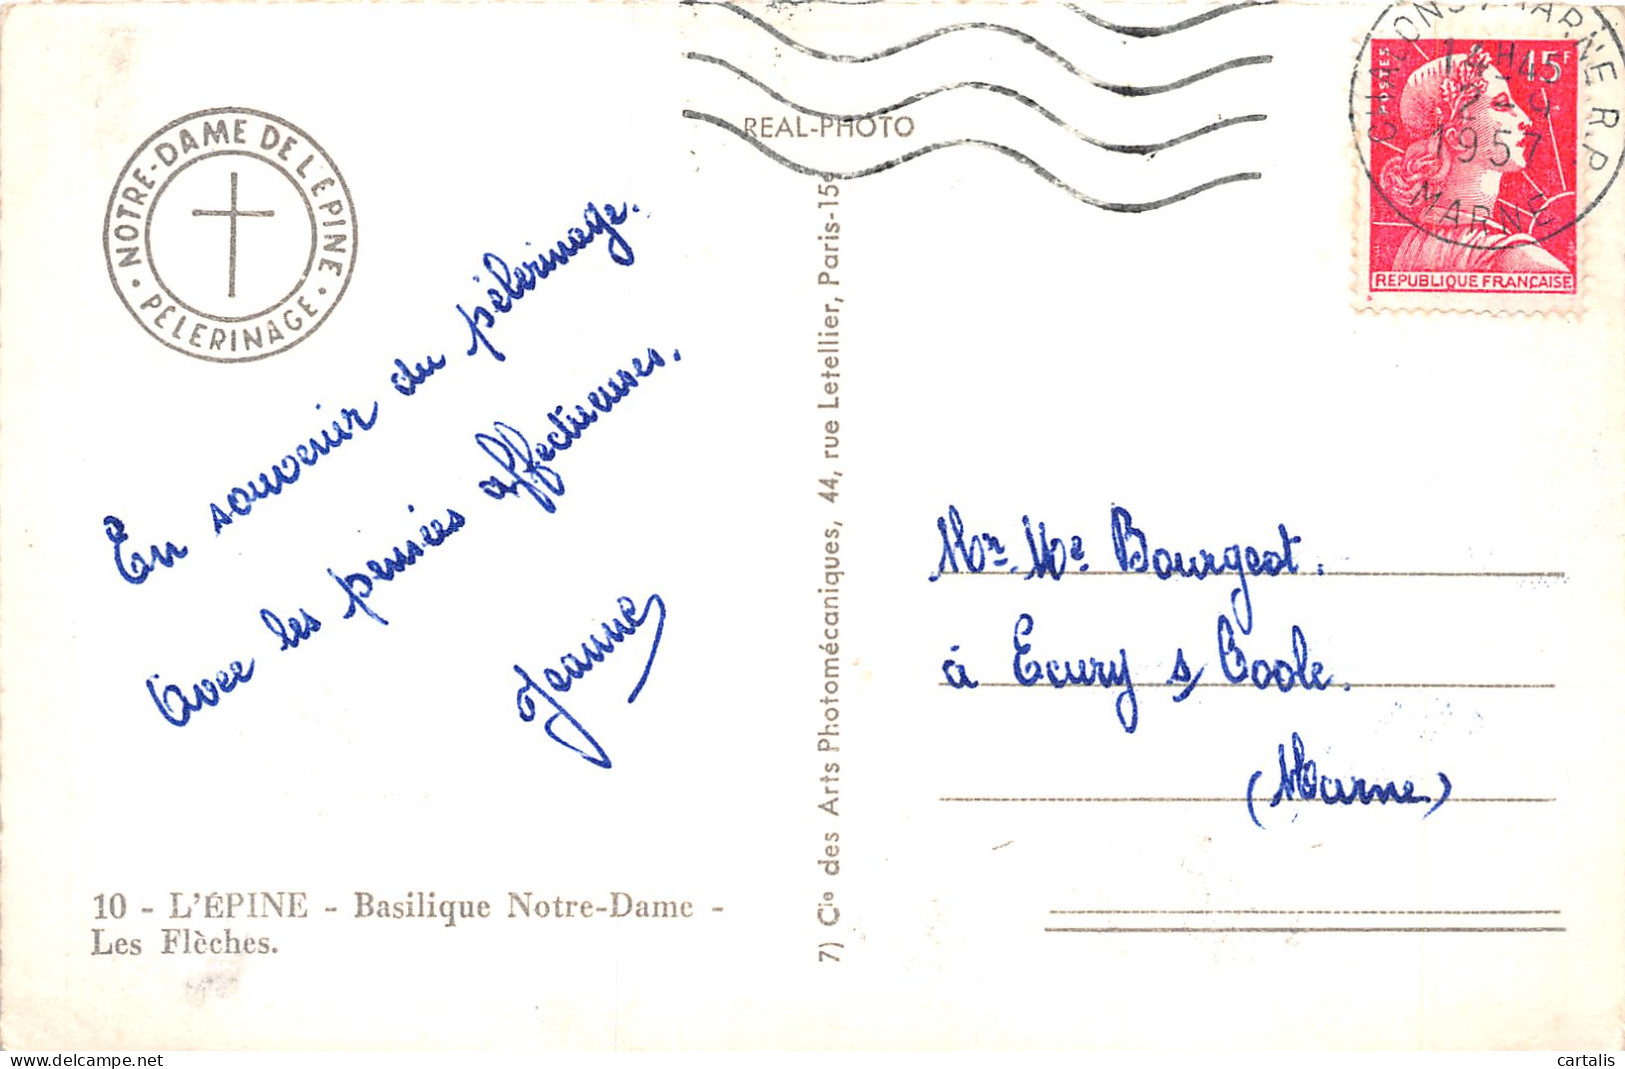 NOTRE-DAME DE L'ÉPINE
• PÈLERINAGE •
En souvenir du pélerinage.
Avec les pensées affectueuses.
Jeanne
10 - L'ÉPINE - Basilique Notre-Dame -
Les Flèches.
REAL-PHOTO
7) Cie des Arts Photomécaniques, 44, rue Letellier, Paris-15e
CHALONS S MARNE R.P.
14H45
2-9
1957
MARNE
POSTES
15F
REPUBLIQUE FRANÇAISE
Mr. Me Bourgeot.
à Ecury s/ Coole.
(Marne)
cartalis